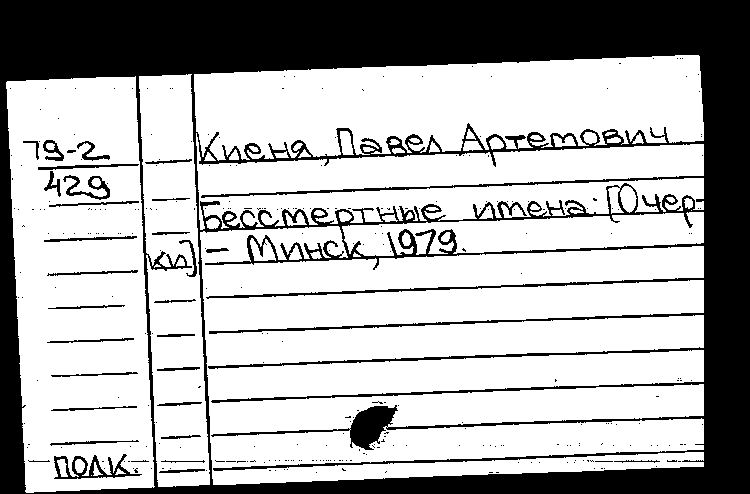 79-2
429
Киеня, Павел Артемович
Бессмертные имена: [Очер-
ки] - Минск, 1979.
полк.